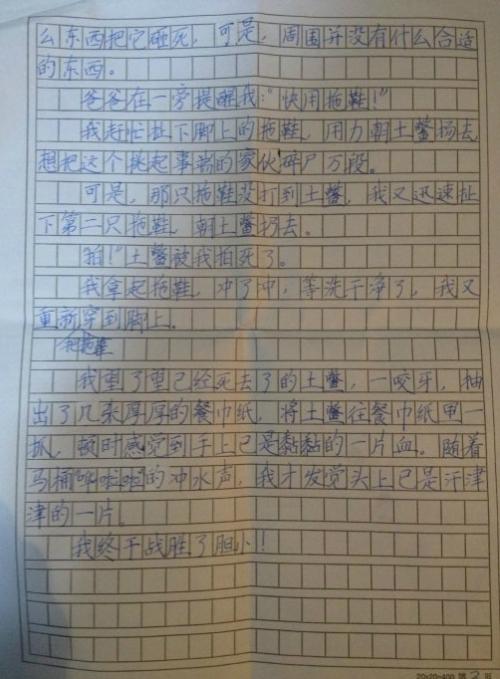 么东西把它砸死，可是，周围并没有什么合适
的东西。
爸爸在一旁提醒我："快用拖鞋！"
我赶忙扯下脚上的拖鞋，用力朝土鳖扔去
想把这个挑起事端的家伙碎尸万段。
可是，那只拖鞋没打到土鳖，我又迅速扯
下第二只拖鞋，朝土鳖扔去。
拍！"土鳖被我拍死了。
我拿起拖鞋，冲了冲，等洗干净了，我又
重新穿到脚上。
把拖鞋
我望了望已经死去了的土鳖，一咬牙，抽
出了几张厚厚的餐巾纸，将土鳖往餐巾纸里一
抓，顿时感觉到手上已是黏黏的一片血。随着
马桶"哗啦啦"的冲水声，我才发觉头上已是汗津
津的一片。
我终于战胜了胆小！
20×20=400 第3页